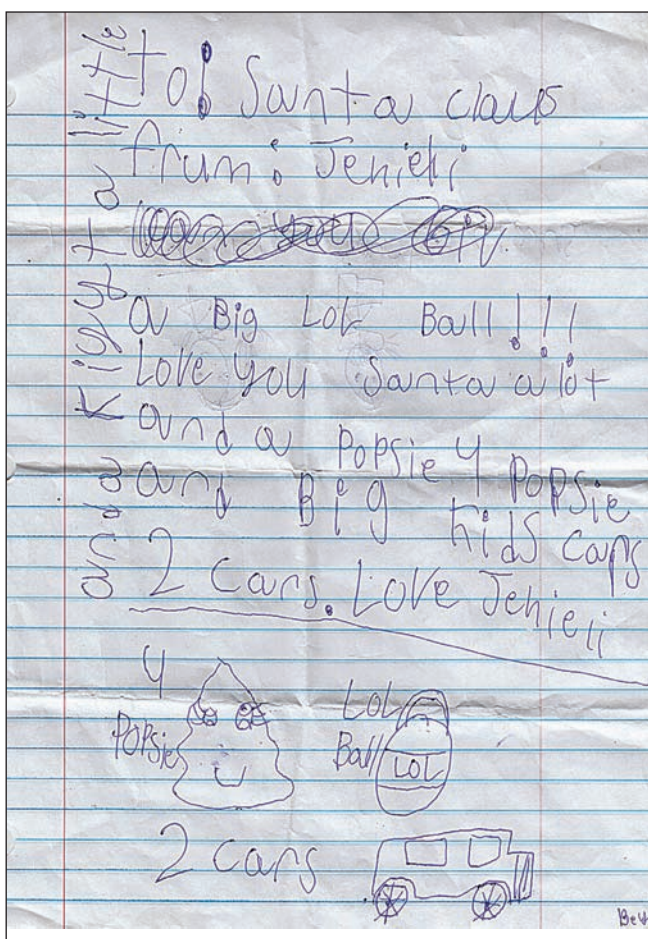 to: Santa claus
frum: Jehieli
a Big LOL Ball!!!
Love you Santa a lot
and a Popsie 4 Popsie
and Big Kids cars
2 cars. Love Jehieli
and a
a little
4
Popsie
LOL
Ball
LOL
2 cars